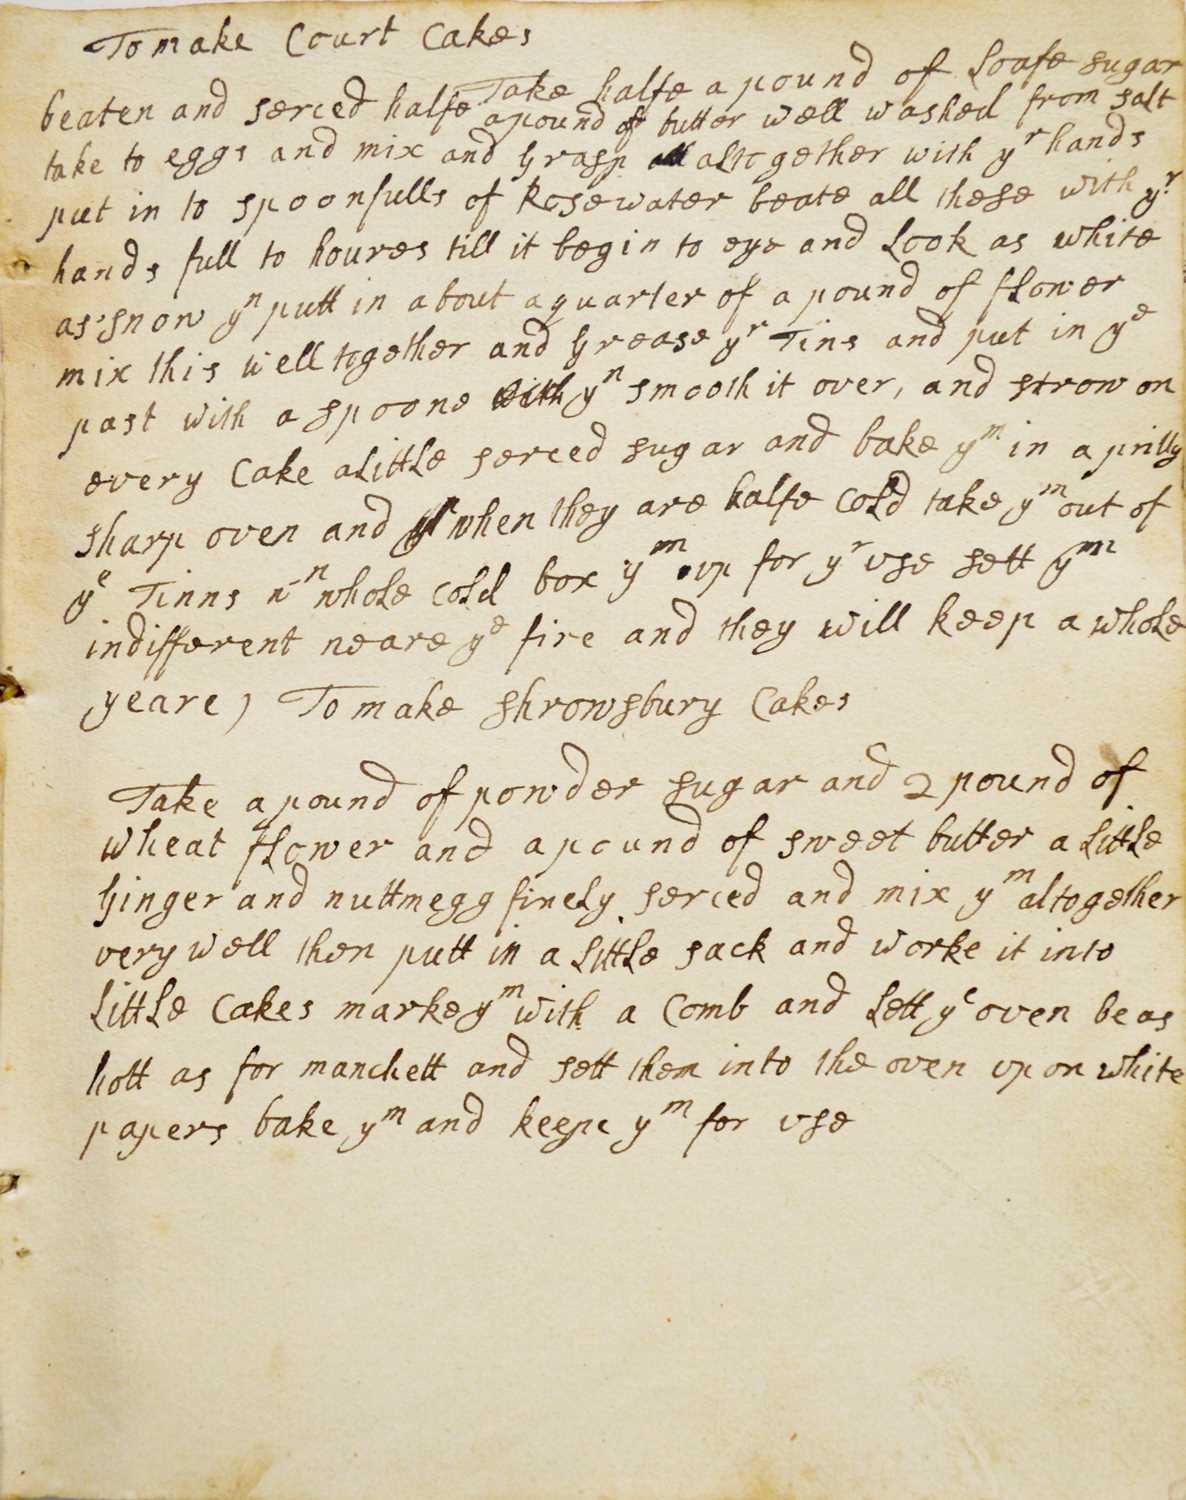 To make Court Cakes
Take halfe a pound of Loafe sugar
beaten and serced halfe a pound of butter well washed from salt
take to eggs and mix and Grasp altogether with yr hands
put in to spoonfulls of Rosewater beate all these with yr
hands full to houres till it begin to eye and Look as white
as snow yn putt in about a quarter of a pound of fflower
mix this well together and Grease yr Tins and put in ye
past with a spoone yn smooth it over, and strow on
every Cake a Little serced sugar and bake ym in a prilly
sharp oven and when they are halfe Cold take ym out of
ye Tinns wn whole cold box ym up for yr use sett ym
indifferent neare ye fire and they will keep a whole
yeare) To make Shrowsbury Cakes
Take a pound of powder sugar and 2 pound of
wheat fflower and a pound of sweet butter a Little
Ginger and nuttmegg finely serced and mix ym altogether
very well then putt in a Little sack and worke it into
Little Cakes marke ym with a Comb and Lett ye oven be as
hott as for manchett and sett them into the oven upon white
papers bake ym and keepe ym for use